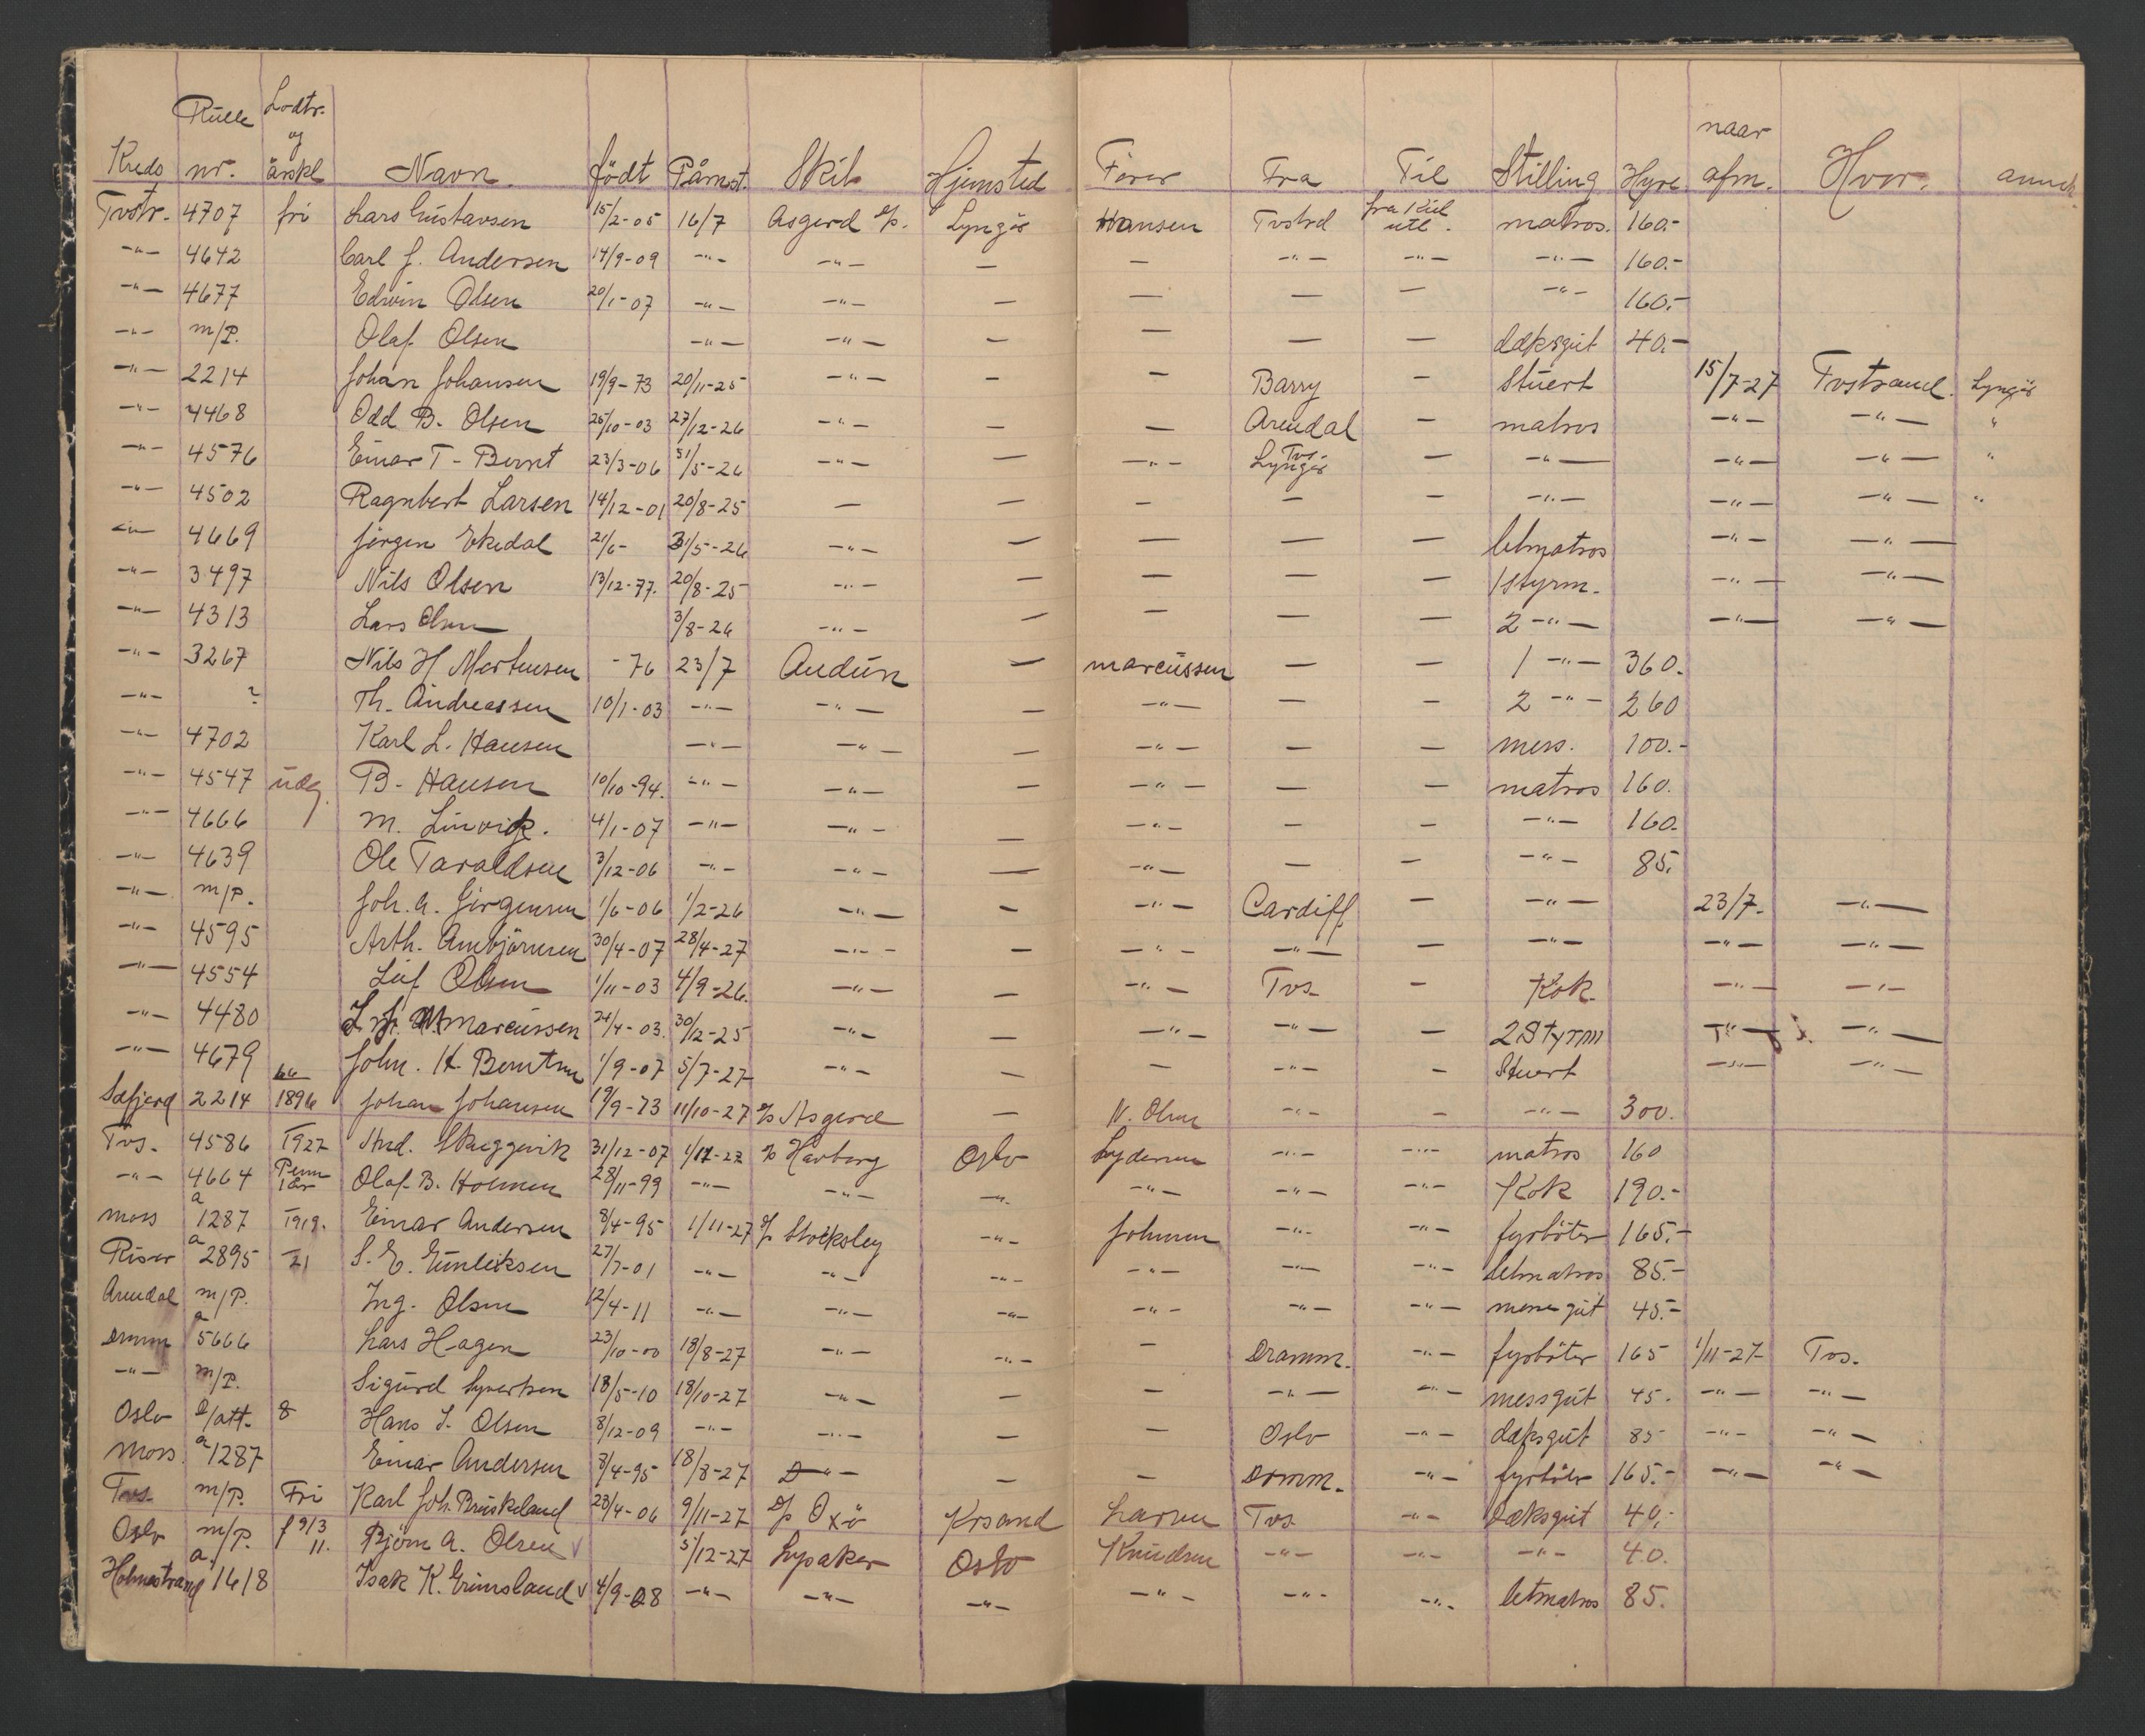 Kreds | Rulle nr. | Lodtr. og årskl | Navn. | födt | Påmst. | Skib | Hjemsted | Förer | Fra | Til | Stilling | Hyre | naar afm. | Hvor. | anmk
Tvstr. | 4707 | fri | Lars Gustavsen | 15/2-05 | 16/7 | Asgerd s/s. | Lyngör | Hansen | Tvstrd | fra Kiel utl. | matros. | 160.-
-"- | 4642 | | Carl J. Andersen | 14/9-09 | -"- | -"- | — | — | -"- | -"- | -"- | 160.-
-"- | 4677 | | Edwin Olsen | 20/1-07 | -"- | -"- | — | — | — | — | -"- | 160.-
-"- | m/P. | | Olaf Olsen | | -"- | -"- | — | — | — | — | dæksgut | 40.-
-"- | 2214 | | Johan Johansen | 19/9-73 | 20/11-25 | -"- | — | — | Barry | — | Stuert | | 15/7-27 | Tvstrand. | Lyngör
-"- | 4468 | | Odd B. Olsen | 25/10-03 | 27/12-26 | -"- | — | — | Arendal | — | matros | | -"- | -"- | "
-"- | 4576 | | Einar T. Bernt | 23/3-06 | 31/5-26 | -"- | — | -"- | Tvs. Lyngör | — | -"- | | -"- | -"- | "
-"- | 4502 | | Ragnbert Larsen | 14/12-01 | 20/8-25 | — | — | — | — | — | -"- | | -"- | -"- | "
-"- | 4669 | | Jörgen Ekedal | 21/6- | 31/5-26 | -"- | — | — | — | — | letmatros | | -"- | -"-
-"- | 3497 | | Nils Olsen | 13/12-77. | 20/8-25 | -"- | — | — | — | — | 1 styrm. | | -"- | -"-
-"- | 4313 | | Lars Olsen | | 3/8-26 | -"- | — | — | — | — | 2 -"- | | -"- | -"-
-"- | 3267 | | Nils H Mortensen | -76 | 23/7 | Audun | — | Marcussen | — | — | 1 -"- | 360.
-"- | ? | | Th. Andreassen | 10/1-03 | -"- | -"- | — | -"- | — | — | 2 -"- | 260
-"- | 4702 | | Karl L. Hansen | | -"- | -"- | — | -"- | — | — | mess. | 100.-
-"- | 4547 | udg. | B. Hansen | 10/10-94. | -"- | -"- | — | -"- | — | — | matros | 160.
-"- | 4666 | | M. Linvik. | 4/1-07 | -"- | -"- | — | -"- | — | — | -"- | 160.
-"- | 4639 | | Ole Taraldsen | 3/12-06 | -"- | -"- | — | -"- | — | — | -"- | 85.
-"- | m/P. | | Joh. A. Jörgensen | 1/6-06 | 1/2-26 | -"- | — | -"- | Cardiff | — | -"- | | 23/7. | -"-
-"- | 4595 | | Arth. Ambjörnsen | 30/4-07 | 28/4-27 | -"- | — | -"- | -"- | — | -"- | | -"- | -"-
-"- | 4554 | | Leif Olsen | 1/11-03 | 4/9-26. | -"- | — | -"- | Tvs. | — | Kok. | | -"- | -"-
-"- | 4480 | | Marcussen | 24/4-03. | 30/12-25 | -"- | — | -"- | -"- | — | 2 Styrm | | -"- | -"-
-"- | 4679 | | John. H. Berntsen | 1/9-07 | 5/7-27 | -"- | — | — | -"- | — | Stuert | | -"- | -"-
2214 | 66 1896 | Johan Johansen | 19/9-73 | 11/10-27 | s/s Asgerd | — | N. Olsen | -"- | — | -"- | 300.
Tvs. | 4586 | T 1927 | And. Skeggevik | 31/12-07 | 1/11-27 | s/s Havborg | Oslo | Lydersen | -"- | -"- | matros | 160
-"- | 4664 | | Olaf B. Holmen | 28/11-99 | -"- | -"- | -"- | -"- | -"- | -"- | Kok | 190.-
Moss | a 1287 | T 1919. | Einar Andersen | 8/4-95 | 1/11-27 | s/s Stocksley | -"- | Johnsen | -"- | -"- | fyrböter | 165.-
Risør | a 2895 | T 21 | S. E. Gunleiksen | 27/7-01 | -"- | -"- | -"- | -"- | -"- | -"- | letmatros | 85.-
Arendal | m/P. | | Ing. Olsen | 12/4-11 | -"- | -"- | -"- | -"- | -"- | -"- | messegut | 45.-
Dramm | a 5666 | | Lars Hagen | 23/10-00 | 18/8-27 | -"- | -"- | — | Dramm. | -"- | fyrböter | 165 | 1/11-27 | Tvs.
-"- | m/P. | | Sigurd Syvertsen | 18/5-10 | 18/10-27 | -"- | — | — | -"- | -"- | messgut | 45. | -"- | -"-
Oslo | D/att. | 8 | Hans S. Olsen | 8/12-09 | -"- | -"- | — | — | Oslo | -"- | dæksgut | 85 | -"- | -"-
Moss. | a 1287 | | Einar Andersen | 8/4-95 | 18/8-27 | -"- | — | — | Dramm. | -"- | fyrböter | 165.- | -"- | -"-
Tvs. | m/P. | Fri | Karl Joh. Bruskeland | 23/4-06 | 9/11-27 | D/s Oxö | Krsand | Larsen | Tvs. | -"- | Dæksgut | 40.-
Oslo | m/P. | f 9/3 11. | Björn A. Olsen ✓ | | 5/12-27 | Lysaker | Oslo | Knudsen | -"- | -"- | -"- | 40.
Holmestrand | a. 1618 | | Isak K. Grimsland ✓ | 4/9-08 | -"- | -"- | -"- | -"- | -"- | -"- | letmatros | 85.